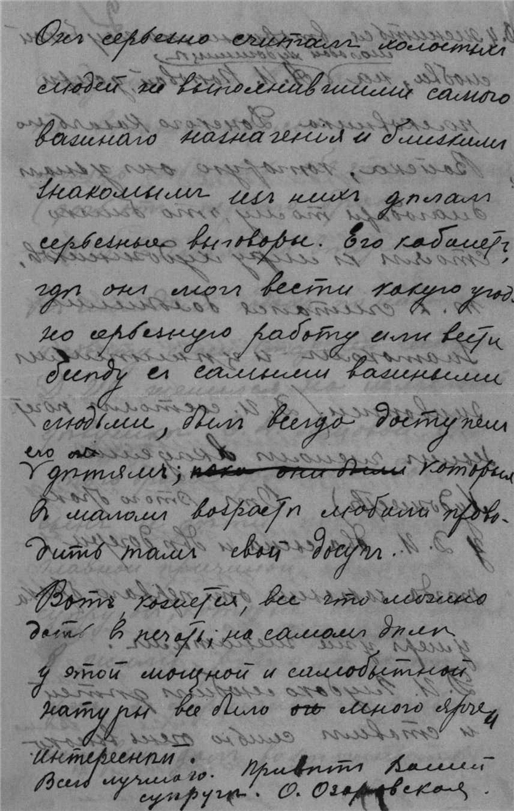 Онъ серьезно считалъ холостыхъ
людей не выполнившими самого
важнаго назначения и близкимъ
знакомымъ изъ нихъ дѣлалъ
серьезные выговоры. Его кабинетъ,
гдѣ онъ могъ вести какую угод
но серьезную работу или вести
бесѣду съ самыми важными
людьми, былъ всегда доступенъ
его
дѣтямъ; пока они были которые
въ маломъ возрастѣ любили прово-
дить тамъ свой досугъ..
Вотъ, кажется, все что можно
дать въ печать, на самомъ дѣлѣ
у этой мощной и самобытной
натуры все было много ярче и
интереснѣй.
Всего лучшаго. Привѣтъ Вашей
супругѣ. О. Озаровская.